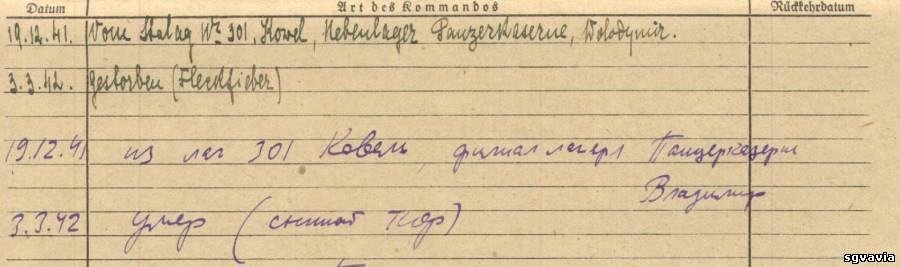 Datum Art des Kommandos Rückkehrdatum
19.12.41. Vom Stalag Nr 301, Kowel, Nebenlager Panzerkaserne, Wolodymir.
3.3.42. Gestorben (Fleckfieber)
19.12.41 из лаг 301 Ковель, филиал лагеря Панцерказерне
Владимир
3.3.42 умер (сыпной тиф)
sgvavia